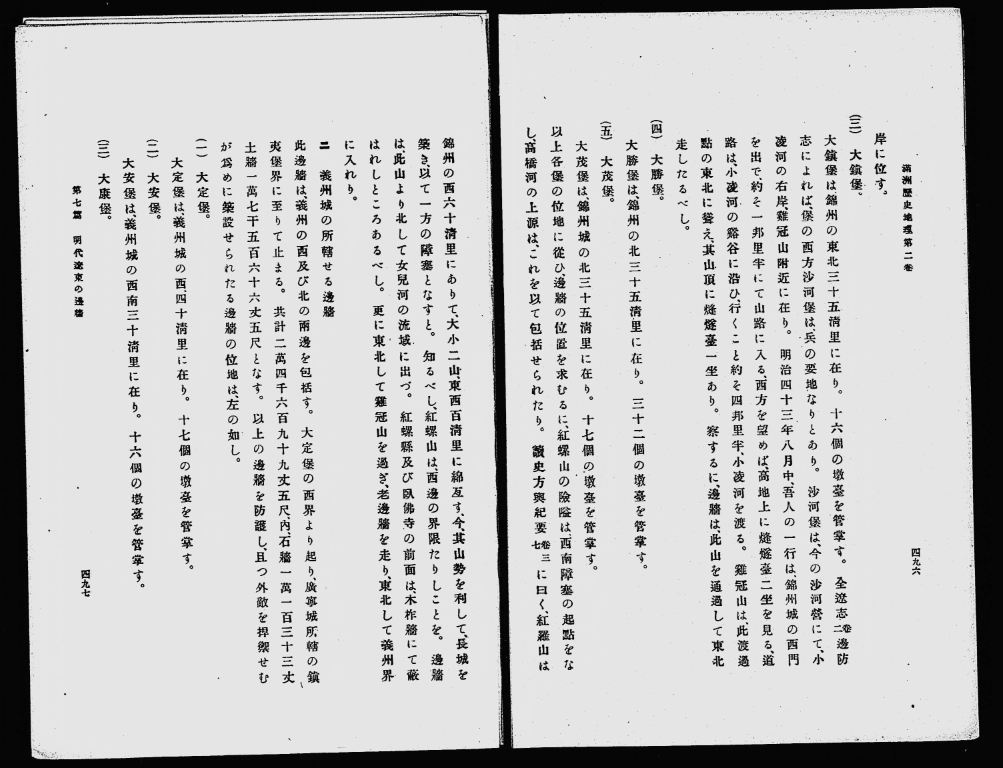 滿洲歷史地理第二卷
四九六
岸に位す。
(三) 大鎭堡。
大鎭堡は錦州の東北三十五淸里に在り。十六個の墩臺を管掌す。全遼志卷二邊防
志によれば、堡の西方沙河堡は、兵の要地なりとあり。沙河堡は、今の沙河營にて、小
凌河の右岸、雞冠山附近に在り。明治四十三年八月中、吾人の一行は錦州城の西門
を出で、約そ一邦里半にて山路に入る、西方を望めば、高地上に烽燧臺二坐を見る、道
路は、小凌河の谿谷に沿ひ、行くこと約そ四邦里半、小凌河を渡る。雞冠山は、此渡過
點の東北に聳え、其山頂に烽燧臺一坐あり。察するに、邊牆は、此山を通過して東北
走したるべし。
(四) 大勝堡。
大勝堡は、錦州の北三十五淸里に在り。三十二個の墩臺を管掌す。
(五) 大茂堡。
大茂堡は、錦州城の北三十五淸里に在り。十七個の墩臺を管掌す。
以上各堡の位地に從ひ、邊牆の位置を求むるに、紅螺山の險隘は、西南障塞の起點をな
し、高橋河の上源は、これを以て包括せられたり。讀史方輿紀要卷三七に曰く、紅羅山は
錦州の西六十淸里にありて、大小二山、東西百淸里に綿亙す、今、其山勢を利して、長城を
築き、以て一方の障塞となすと。知るべし、紅螺山は、西邊の界限たりしことを。邊牆
は、此山より北して女兒河の流域に出づ。紅螺縣及び臥佛寺の前面は、木柞牆にて蔽
はれしところあるべし。更に東北して雞冠山を過ぎ、老邊牆を走り、東北して義州界
に入れり。
二 義州城の所轄せる邊牆
此邊牆は義州の西及び北の兩邊を包括す。大定堡の西界より起り、廣寧城所轄の鎭
夷堡界に至りて止まる。共計二萬四千六百九十九丈五尺、內、石牆一萬一百三十三丈
土牆一萬七千五百六十六丈五尺となす。以上の邊牆を防護し、且つ外敵を捍禦せむ
が爲めに築設せられたる邊牆の位地は、左の如し。
(一) 大定堡。
大定堡は、義州城の西、四十淸里に在り。十七個の墩臺を管掌す。
(二) 大安堡。
大安堡は、義州城の西南三十淸里に在り。十六個の墩臺を管掌す。
(三) 大康堡。
第七篇 明代遼東の邊牆
四九七